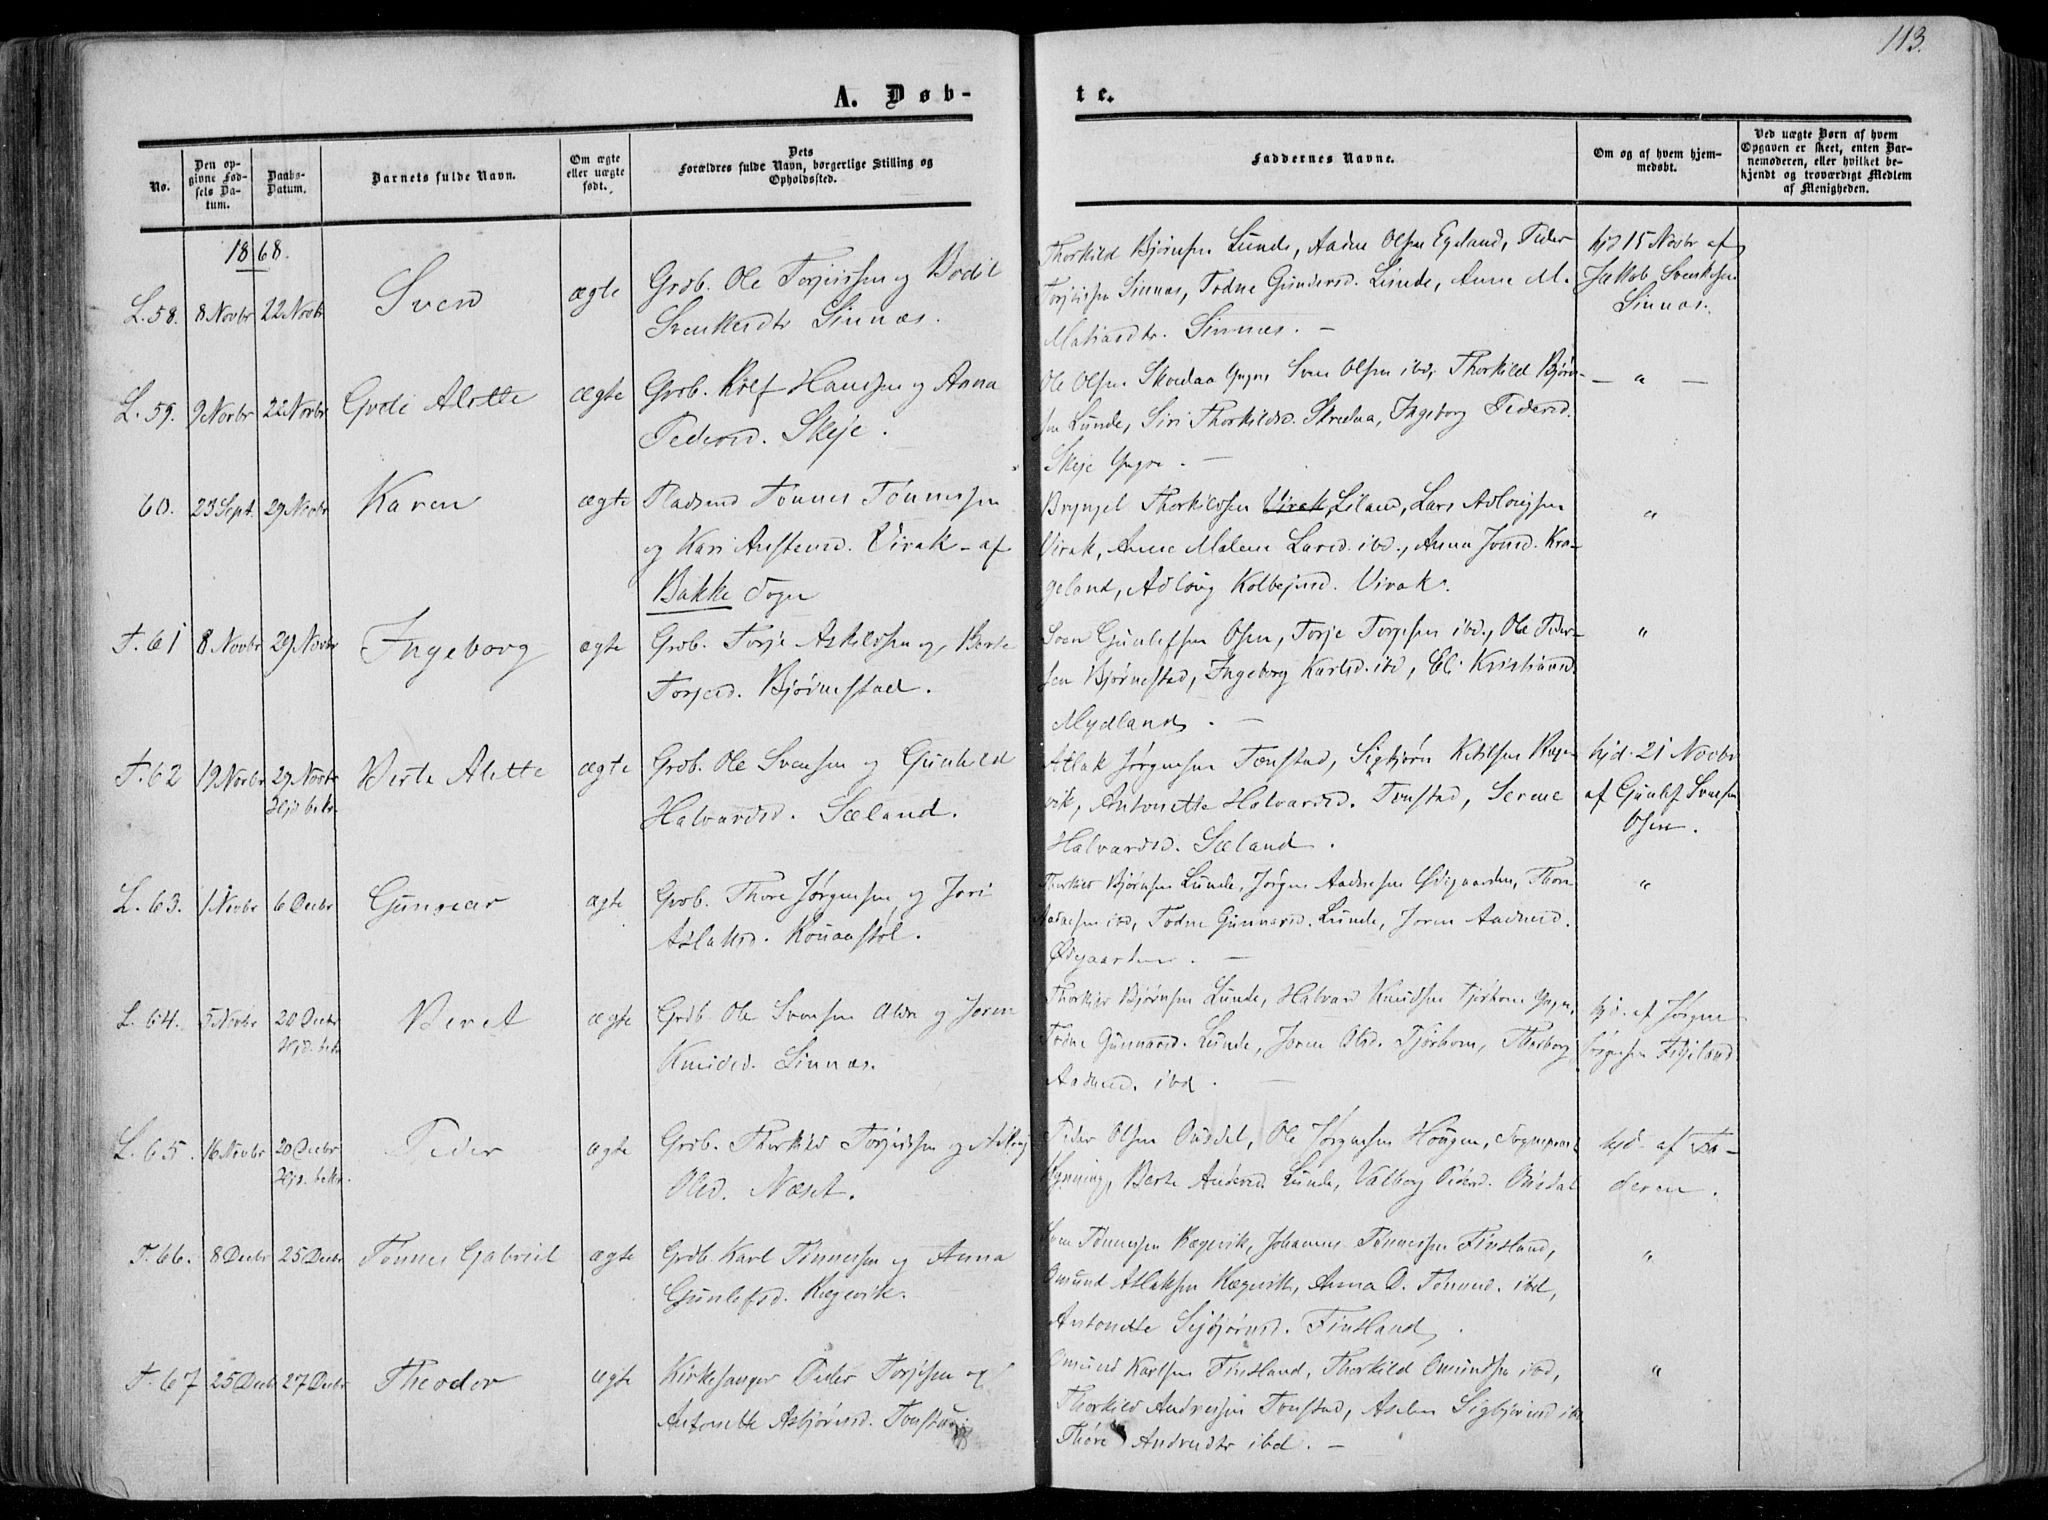 113.
A. Døb-
te.
No.
Den opgivne Fødsels Datum.
Daabs-Datum.
Barnets fulde Navn.
Om ægte eller uægte født.
Dets Forældres fulde Navn, borgerlige Stilling og Opholdssted.
Faddernes Navne.
Om og af hvem hjemmedøbt.
Ved uægte Børn af hvem Opgaven er skeet, enten Barnemoderen, eller hvilket bekjendt og troværdigt Medlem af Menigheden.
1868.
L. 58. 8 Novbr 22 Novbr Sven ægte Grdb. Ole Torjussen og Bodil
Svenkesdtr Sinnæs.
Thorkild Bjørnsen Lunde, Aadne Olsen Egeland, Peder
Torjussen Sinnæs, Todne Gundersd. Lunde, Anne M.
Mathiasdtr. Sinnæs. –
hjd 15 Novbr af
Jakob Svenkesen
Sinnæs.
L. 59. 9 Novbr 22 Novbr Gode Alette ægte Grdb. Rolf Hansen og Anna
Pedersd. Skeje.
Ole Olsen Skredaa Yngre Sven Olsen ibd, Thorkild Bjørn-
sen Lunde, Siri Thorkildsd. Skredaa, Ingeborg Pedersd.
Skeje Yngre. –
– " –
60. 23 Sept. 29 Novbr Karen ægte Pladsmd Tønnes Tønnessen
og Kari Anstensd. Virak – af
Bakke Sogn
Bryngel Thorkildsen Virak, Liland, Lars Adlougsen
Virak, Anne Malene Larsd. ibd., Anna Jonsd. Kra-
geland, Adloug Kolbejnsd. Virak.
"
T. 61 8 Novbr 29 Novbr Ingeborg ægte Grdb. Torje Askildsen og Berte
Torjesd. Bjørnestad.
Sven Gunlefsen Osen, Torje Torjesen ibd., Ole Peder-
sen Bjørnestad, Ingeborg Karlsd. ibd, Eli Kristiansd.
Mydland. –
"
T. 62 19 Novbr 29 Novbr Berte Alette ægte Grdb. Ole Svensen og Gunhild
Hjd bekr.
Halvardsd. Sæland.
Aslak Jørgensen Tonstad, Sigbjørn Ketilsen Ræge-
vik, Antonette Halvardsd. Tonstad, Serine
Halvardsd. Sæland.
hjd. 21 Novbr
af Gunlef Svensen
Osen.
L. 63. 1 Novbr 6 Decbr Gunnar ægte Grdb. Thore Jørgensen og Jori
Aslaksd. Kouanstøl.
Thorkild Bjørnsen Lunde, Jørgen Aadnesen Ødegaarden, Thore
Aadnesen ibd, Todne Gunnarsd. Lunde, Joren Aadnesd.
Ødegaarden. –
"
L. 64. 5 Novbr 20 Decbr Beret ægte Grdb Ole Svensen Øldre og Joren
Hjd. bekr.
Knudsd. Sinnæs.
Thorkild Bjørnsen Lunde, Halvard Knudsen Tjørhom Yngre,
Todne Gunnarsd. Lunde, Joren Olsd. Tjørhom, Thorborg
Aadnesd. ibd. –
hjd. af Jørgen
Jørgensen Fidjeland
L. 65. 16 Novbr 20 Decbr Peder ægte Grdb. Thorkild Torjussen og
Hjd. bekr.
Olsd. Næset.
Peder Olsen Ousdal, Ole Jørgensen Hougen, Sogneprest
Rynning, Berte Andersd. Lunde, Valborg Pedersd. Ousdal
hjd. af Fa-
deren.
T. 66. 8 Decbr 25 Decbr Tønnes Gabriel ægte Grdb Karl Tønnessen og Anna
Gunlefsd. Rægevik.
Sven Tønnessen Rægevik, Johannes Tønnessen Finsland,
Omund Aslaksen Rægevik, Anna O. Tønnesd. ibd,
Antonette Sigbjørnsd. Finsland.
"
T. 67 25 Decbr 27 Decbr Theodor ægte Kirkesanger Peder Torjesen og
Antonette Asbjørnsd. Tonstad.
Omund Karlsen Finsland, Thorkild Omundsen ibd,
Thorkild Andreassen Tonstad, Aselen Sigbjørnsd ibd
Thore Andreasdtr ibd. –
"